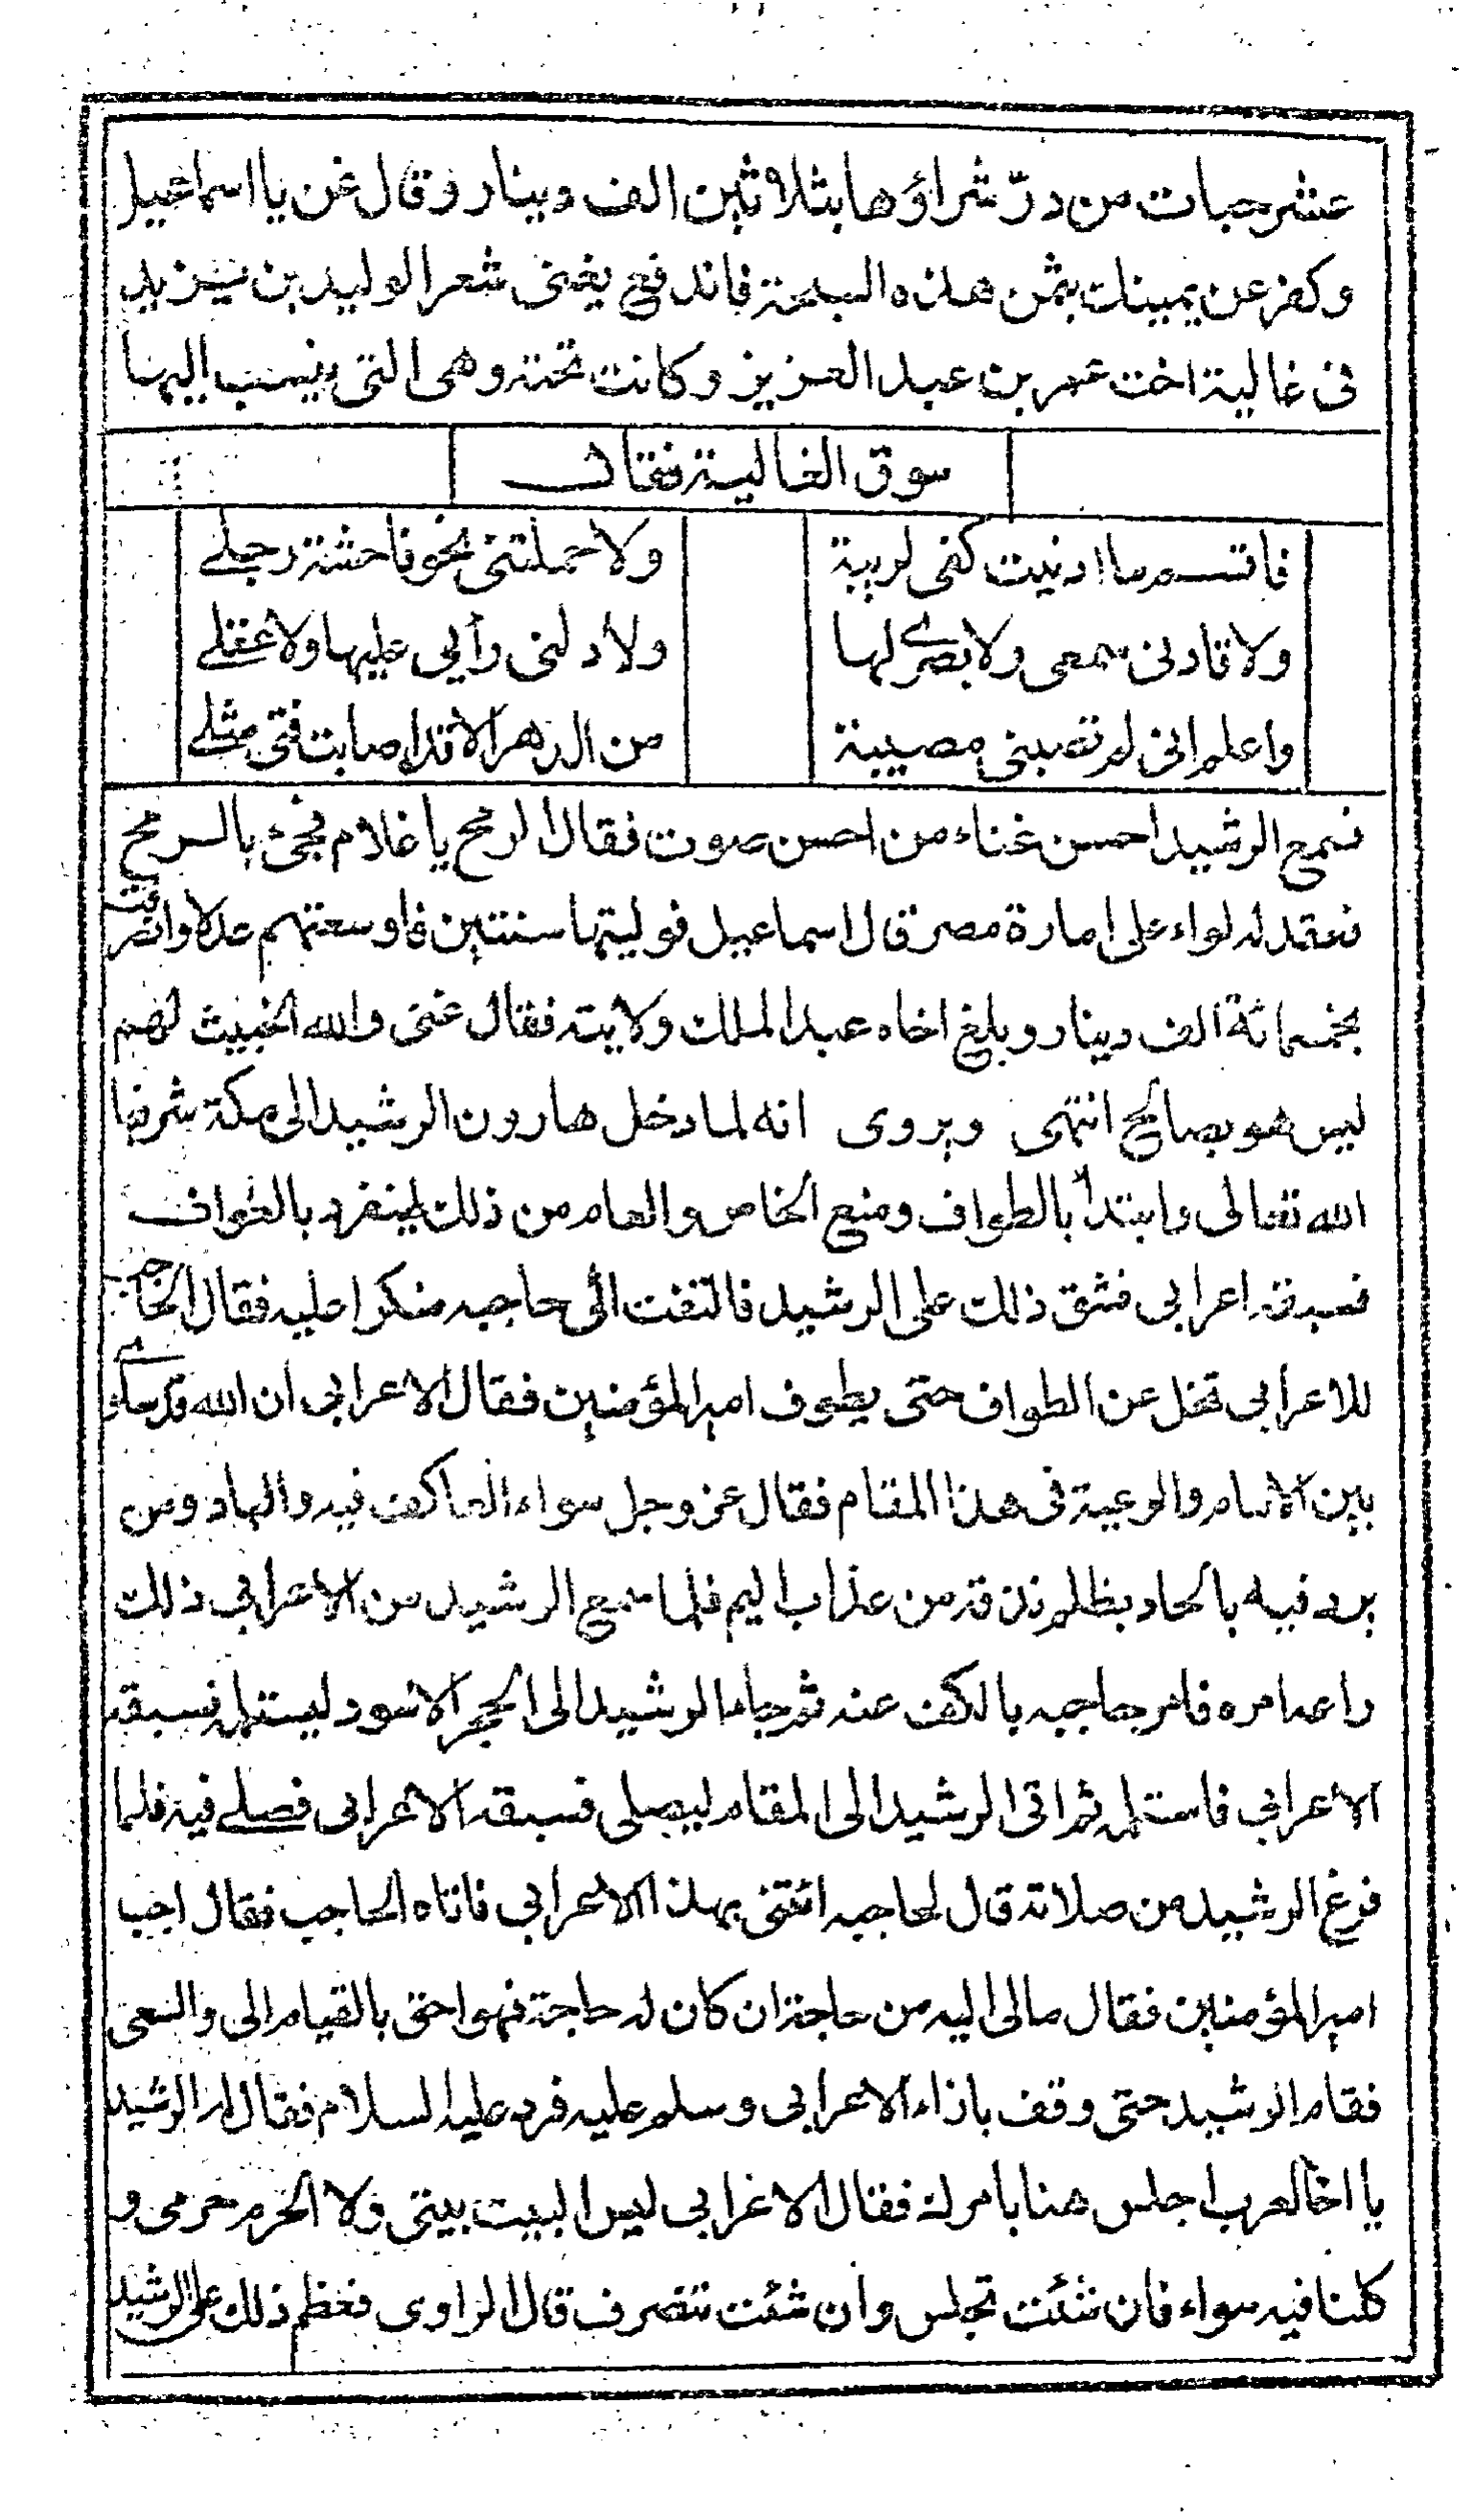 عشر حبات من درّ شراؤها بثلاثين الف دينار وقال غن يا اسماعيل
وكفر عن يمينك بثمن هذه السبحة فاندفع يغنى شعر الوليد بن يزيد
فى غالية اخت عمر بن عبد العزيز وكانت تحته وهى التى ينسب اليها
سوق الغالية فقال
فاقسم ما ادنيت كفى لريبة ولا حملتنى نحو فاحشة رجلے
ولا قادنى سمعى ولا بصرے لها ولا دلنى رأيى عليها ولا عقلے
واعلم انى لم تصبنى مصيبة من الدهر الا قد اصابت فتى مثلے
فسمع الرشيد احسن غناء من احسن صوت فقال الرمح يا غلام فجئ بالرمح
فعقد له لواء على امارة مصر قال اسماعيل فوليتها سنتين فاوسعتهم عدلا وانصرفت
بخمسمائة الف دينار وبلغ اخاه عبد الملك ولايته فقال غنى والله الخبيث لهم
ليس هو بصالح انتهى ويروى انه لما دخل هارون الرشيد الى مكة شرفها
الله تعالى وابتدأ بالطواف ومنع الخاص والعام من ذلك لينفرد بالطواف
فسبقه اعرابى فشق ذلك على الرشيد فالتفت الى حاجبه منكرا عليه فقال الحاجب
للاعرابى تخل عن الطواف حتى يطوف امير المؤمنين فقال الاعرابى ان الله قد ساوے
بين الامام والرعية فى هذا المقام فقال عز وجل سواء العاكف فيه والباد ومن
يرد فيه بالحاد بظلم نذقه من عذاب اليم فلما سمع الرشيد من الاعرابى ذلك
راعه امره فامر حاجبه بالكف عنه ثم جاء الرشيد الى الحجر الاسود ليستلمه فسبقه
الاعرابى فاستلمه ثم اتى الرشيد الى المقام ليصلى فسبقه الاعرابى فصلے فيه فلما
فرغ الرشيد من صلاته قال لحاجبه ائتنى بهذا الاعرابى فاتاه الحاجب فقال اجب
امير المؤمنين فقال مالى اليه من حاجة ان كان له حاجة فهو احق بالقيام الى والسعى
فقام الرشيد حتى وقف بازاء الاعرابى وسلم عليه فرد عليه السلام فقال له الرشيد
يا اخا العرب اجلس هنا بامرك فقال الاعرابى ليس البيت بيتى ولا الحرم حرمى و
كلنا فيه سواء فان شئت تجلس وان شئت تنصرف قال الراوى فعظم ذلك على الرشيد